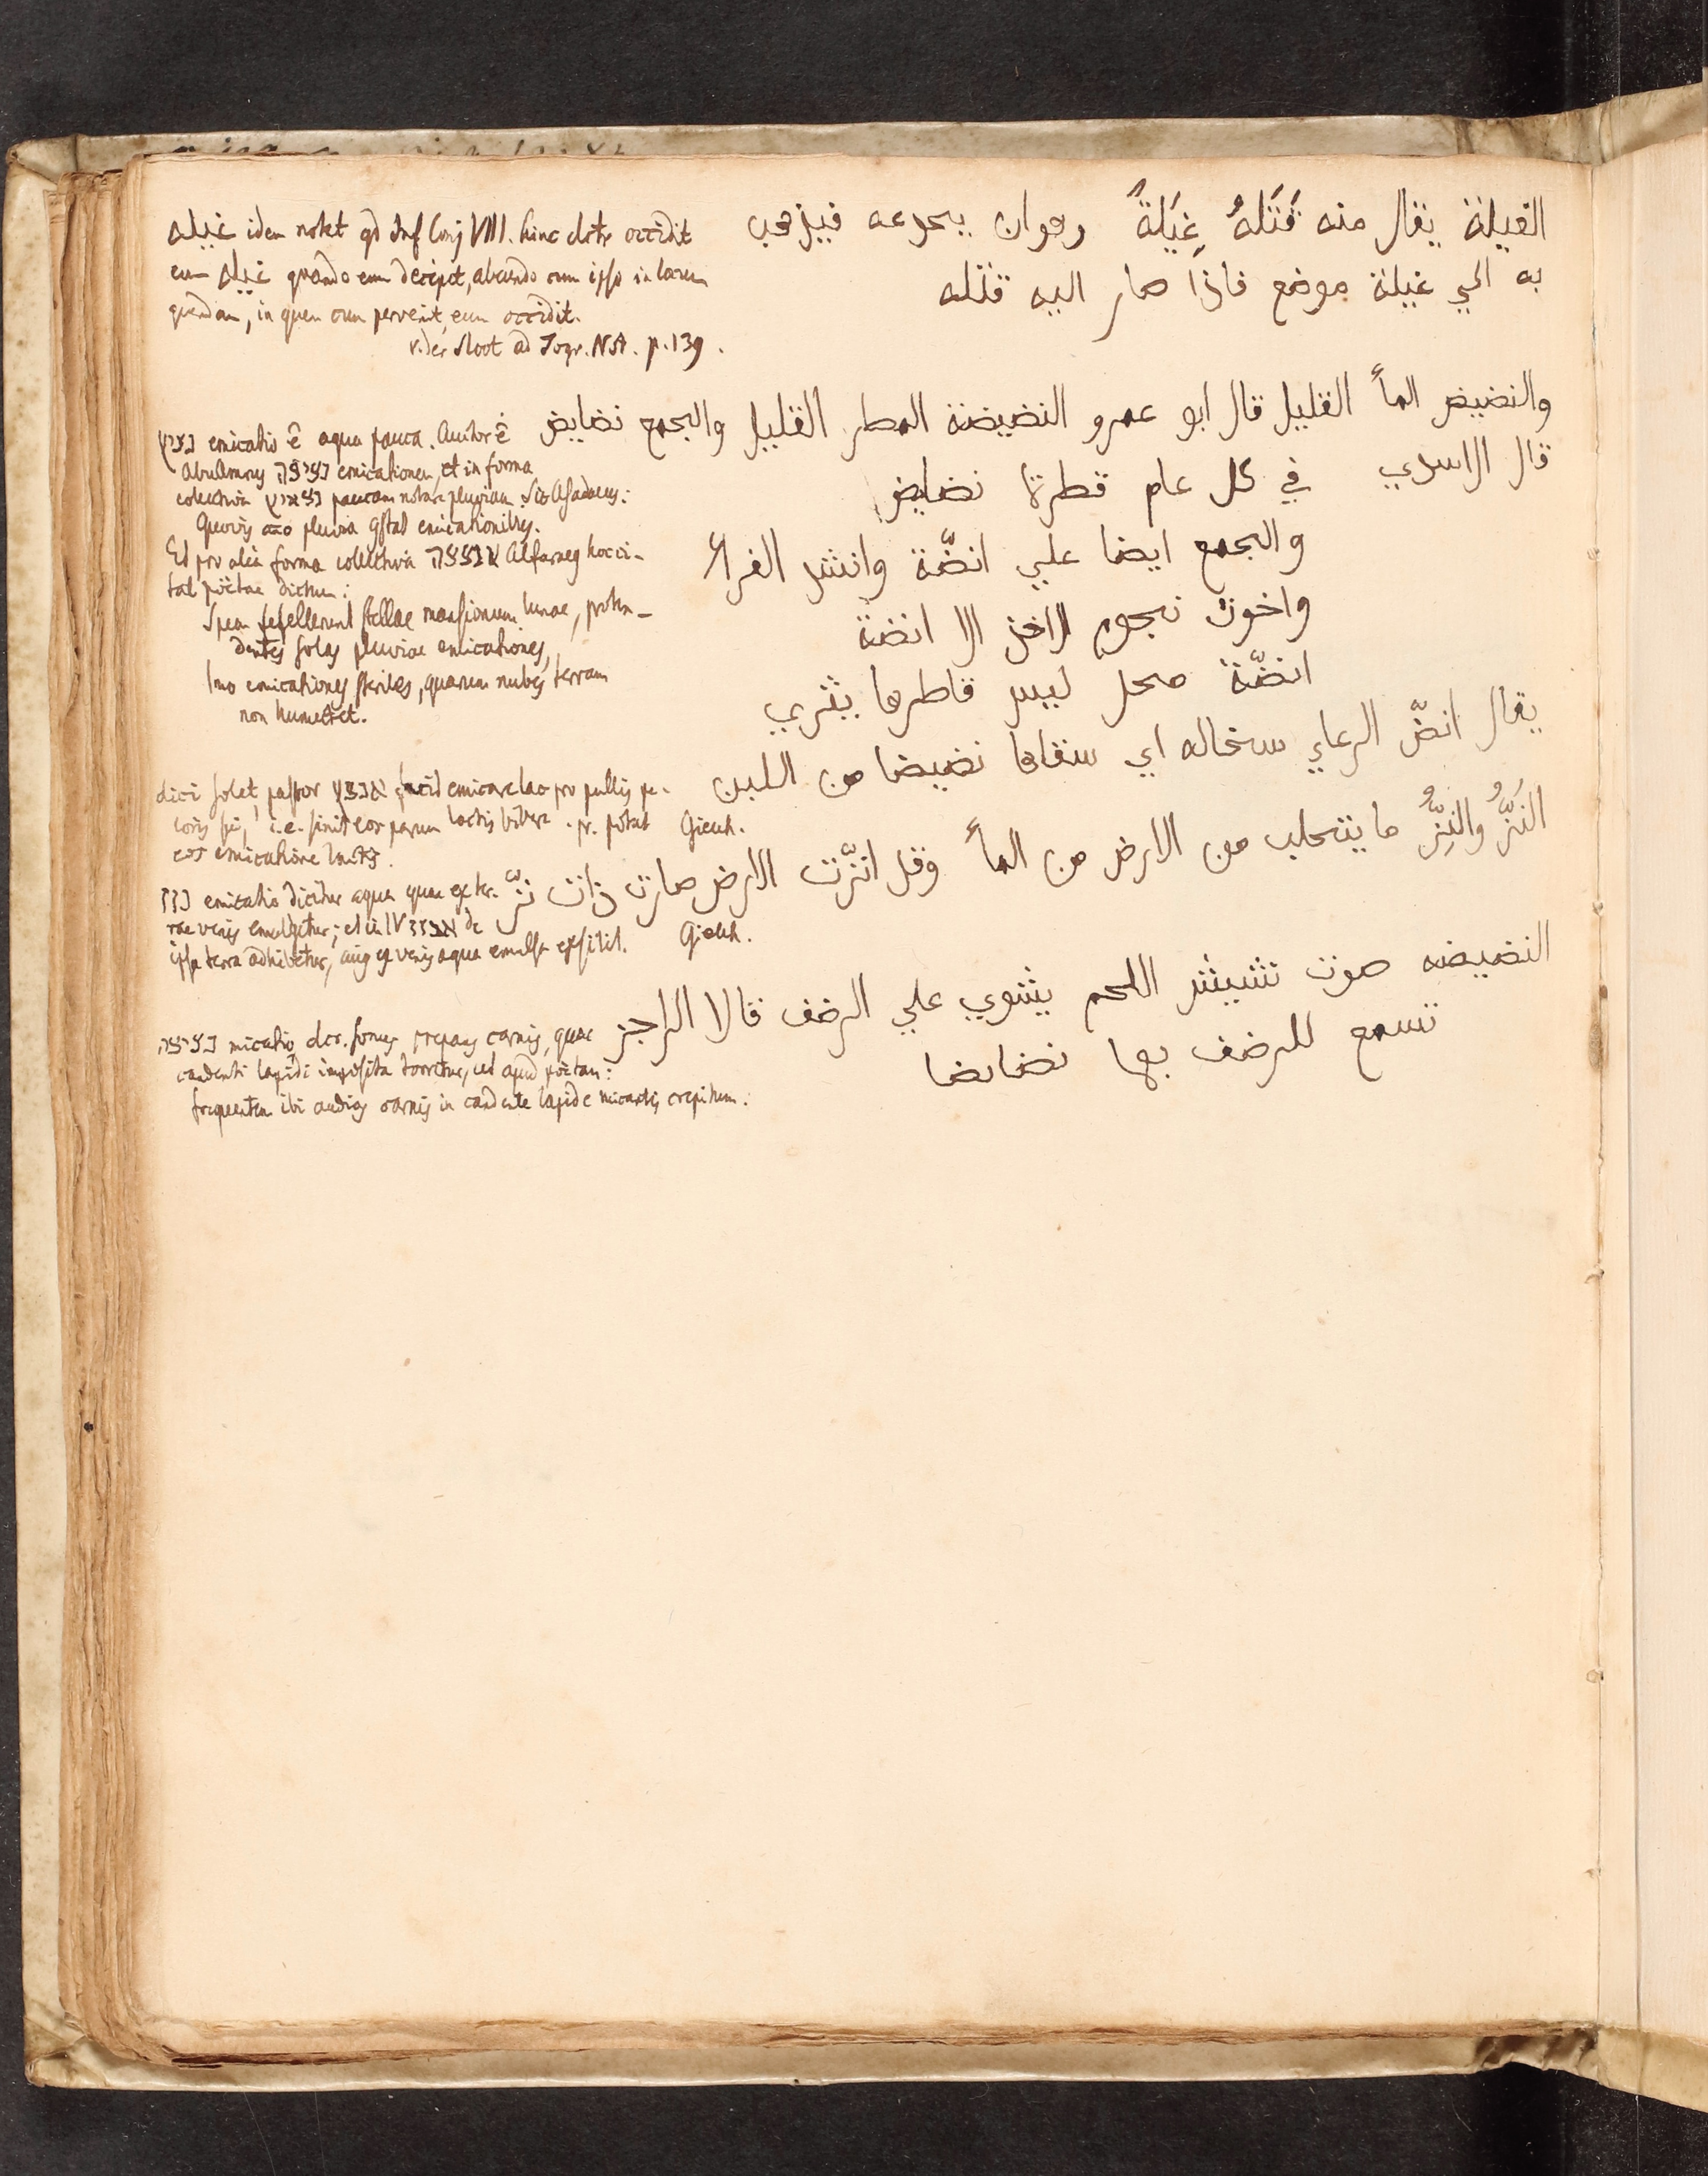 الغيلة يقال منه قَتَلَهُ غِيَلةً وهو ان يخدعه فيذهب
به الي غيلة موضع فاذا صار اليه قتله
غيله idem notat qd Inf Conj VIII. hinc dctr occidit
eum غيله quando eum decipit, abeundo cum ipso in locum
quendam, in quem cum pervenit, eum occidit.
v. der Sloot ad Togr. N.A. p. 139.
والنضيض المأ القليل قال ابو عمرو النضيضة المطر القليل والجمع نضايض
قال الاسدي في كل عام قطرة نضايض
والجمع ايضا علي انضّة وانشد الفرا
واخوت نجوم الاخذ الا انضة
انضّة محل ليس قاطرها يثري
emicatio ê aqua pauca. Auctor ê
Abulamrus emicationem, et in forma
colectiva paucam notare pluviam. Sic Asadaeus:
Quovis anno pluvia qstat emicationibus.
Et pro alia forma colectiva אנצצה Alfaraeg hoc ci-
tat poëtae dictum:
Spem fefellerunt stellae mansionum lunae, proten-
dentes solas pluviae emicationes,
Imo emicationes steriles, quarum nubes terram
non humectet.
يقال انضّ الراعي سخاله اي سقاها نضيضا من اللبن
dici solet, pastor אנצץ facit emicare lac pro pullis pe-
coris sui, i.e. sinit eos parum lactis bibere. pr. potat Gieuh.
eos emicatione lactis.
النَزُّ والنِزُّ ما يتحلب من الارض من المأ وقل انزّت الارض صارت ذات نزّ
נזז emicatio dicitur aqua quae ex ter-
rae venis emulgetur; et in IV אנזז de
ipsa terra adhibetur, cuius ex venis aqua emulsa exsilit. Gieuh.
النضيضه صوت نشيش اللحم يشوي علي الرضف قالا الراجز
تسمع للرضف بها نضايضا
נציצה micatio dcr. sonus crepans carnis, quae
candenti lapidi imposita torretur, ut apud poëtam:
frequentem ibi audias carnis in candente lapide micantis crepitum.